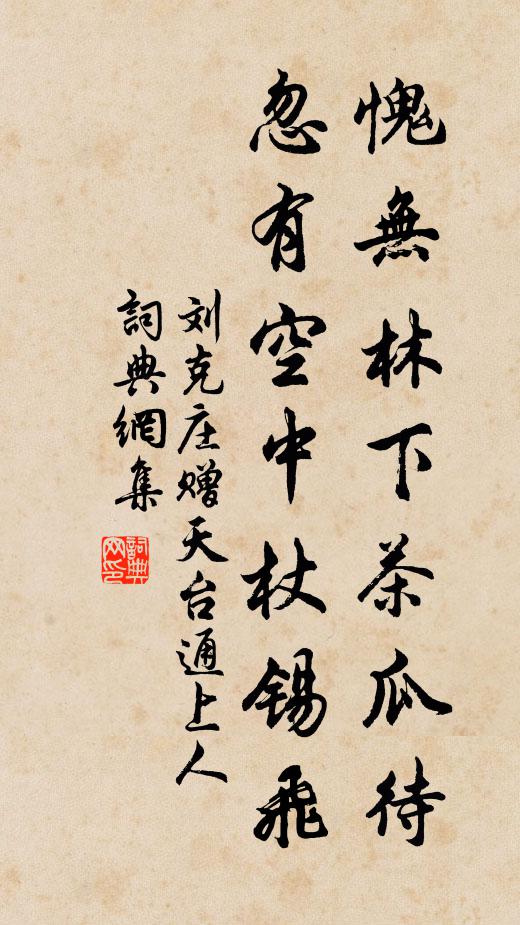 愧無林下茶瓜待
忽有空中杖锡飛
刘克庄赠天台通上人
詞典網集
詞典網印